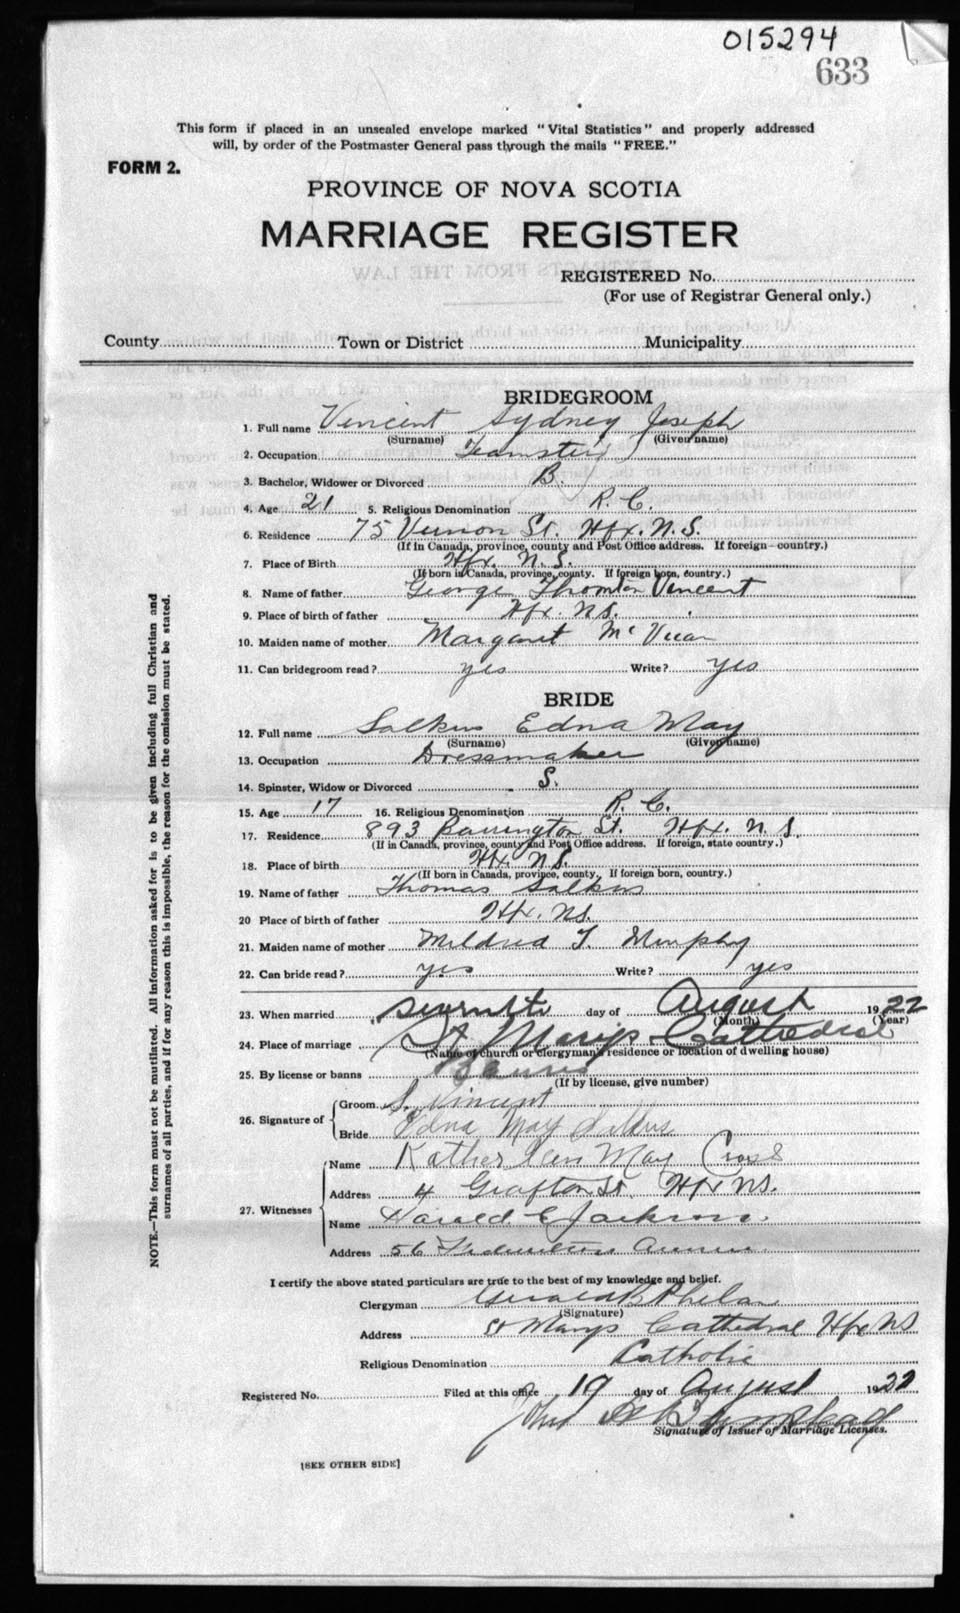 015294
633
This form if placed in an unsealed envelope marked "Vital Statistics" and properly addressed
will, by order of the Postmaster General pass through the mails "FREE."
FORM 2.
PROVINCE OF NOVA SCOTIA
MARRIAGE REGISTER
REGISTERED No.
(For use of Registrar General only.)
County Town or District Municipality
BRIDEGROOM
1. Full name Vincent Sydney Joseph
(Surname) (Given name)
2. Occupation Teamster
3. Bachelor, Widower or Divorced B.
4. Age 21 5. Religious Denomination R. C.
6. Residence 75 Vernon St. Hfx. N.S.
(If in Canada, province, county and Post Office address. If foreign-country.)
7. Place of Birth Hfx. N.S.
(If born in Canada, province, county. If foreign born, country.)
8. Name of father George Thornton Vincent
9. Place of birth of father Hfx. N.S.
10. Maiden name of mother Margaret McVicar
11. Can bridegroom read? yes Write? yes
BRIDE
12. Full name Salkus Edna May
(Surname) (Given name)
13. Occupation Dressmaker
14. Spinster, Widow or Divorced S.
15. Age 17 16. Religious Denomination R. C.
17. Residence 893 Barrington St. Hfx. N.S.
(If in Canada, province, county and Post Office address. If foreign, state country.)
18. Place of birth Hfx N.S.
(If born in Canada, province, county, If foreign born, country.)
19. Name of father Thomas Salkus
20 Place of birth of father Hfx. N.S.
21. Maiden name of mother Mildred T. Murphy
22. Can bride read? yes Write? yes
23. When married seventh day of August 1922
(Month) (Year)
24. Place of marriage St Marys Cathedral
(Name of church or clergyman's residence or location of dwelling house)
25. By license or banns Banns
(If by license, give number)
26. Signature of Groom S. Vincent
Bride Edna May Salkus
27. Witnesses Name May Cross
Address 4 Grafton St. Hfx N.S.
Name Harold E Jackson
Address 56
I certify the above stated particulars are true to the best of my knowledge and belief.
Clergyman Gerald B Phelan
(Signature)
Address St Marys Cathedral Hfx NS
Religious Denomination Catholic
Registered No. Filed at this office 19 day of August 1922
John
Signature of Issuer of Marriage Licenses.
[SEE OTHER SIDE]
NOTE.—This form must not be mutilated. All information asked for is to be given including full Christian and
surnames of all parties, and if for any reason this is impossible, the reason for the omission must be stated.